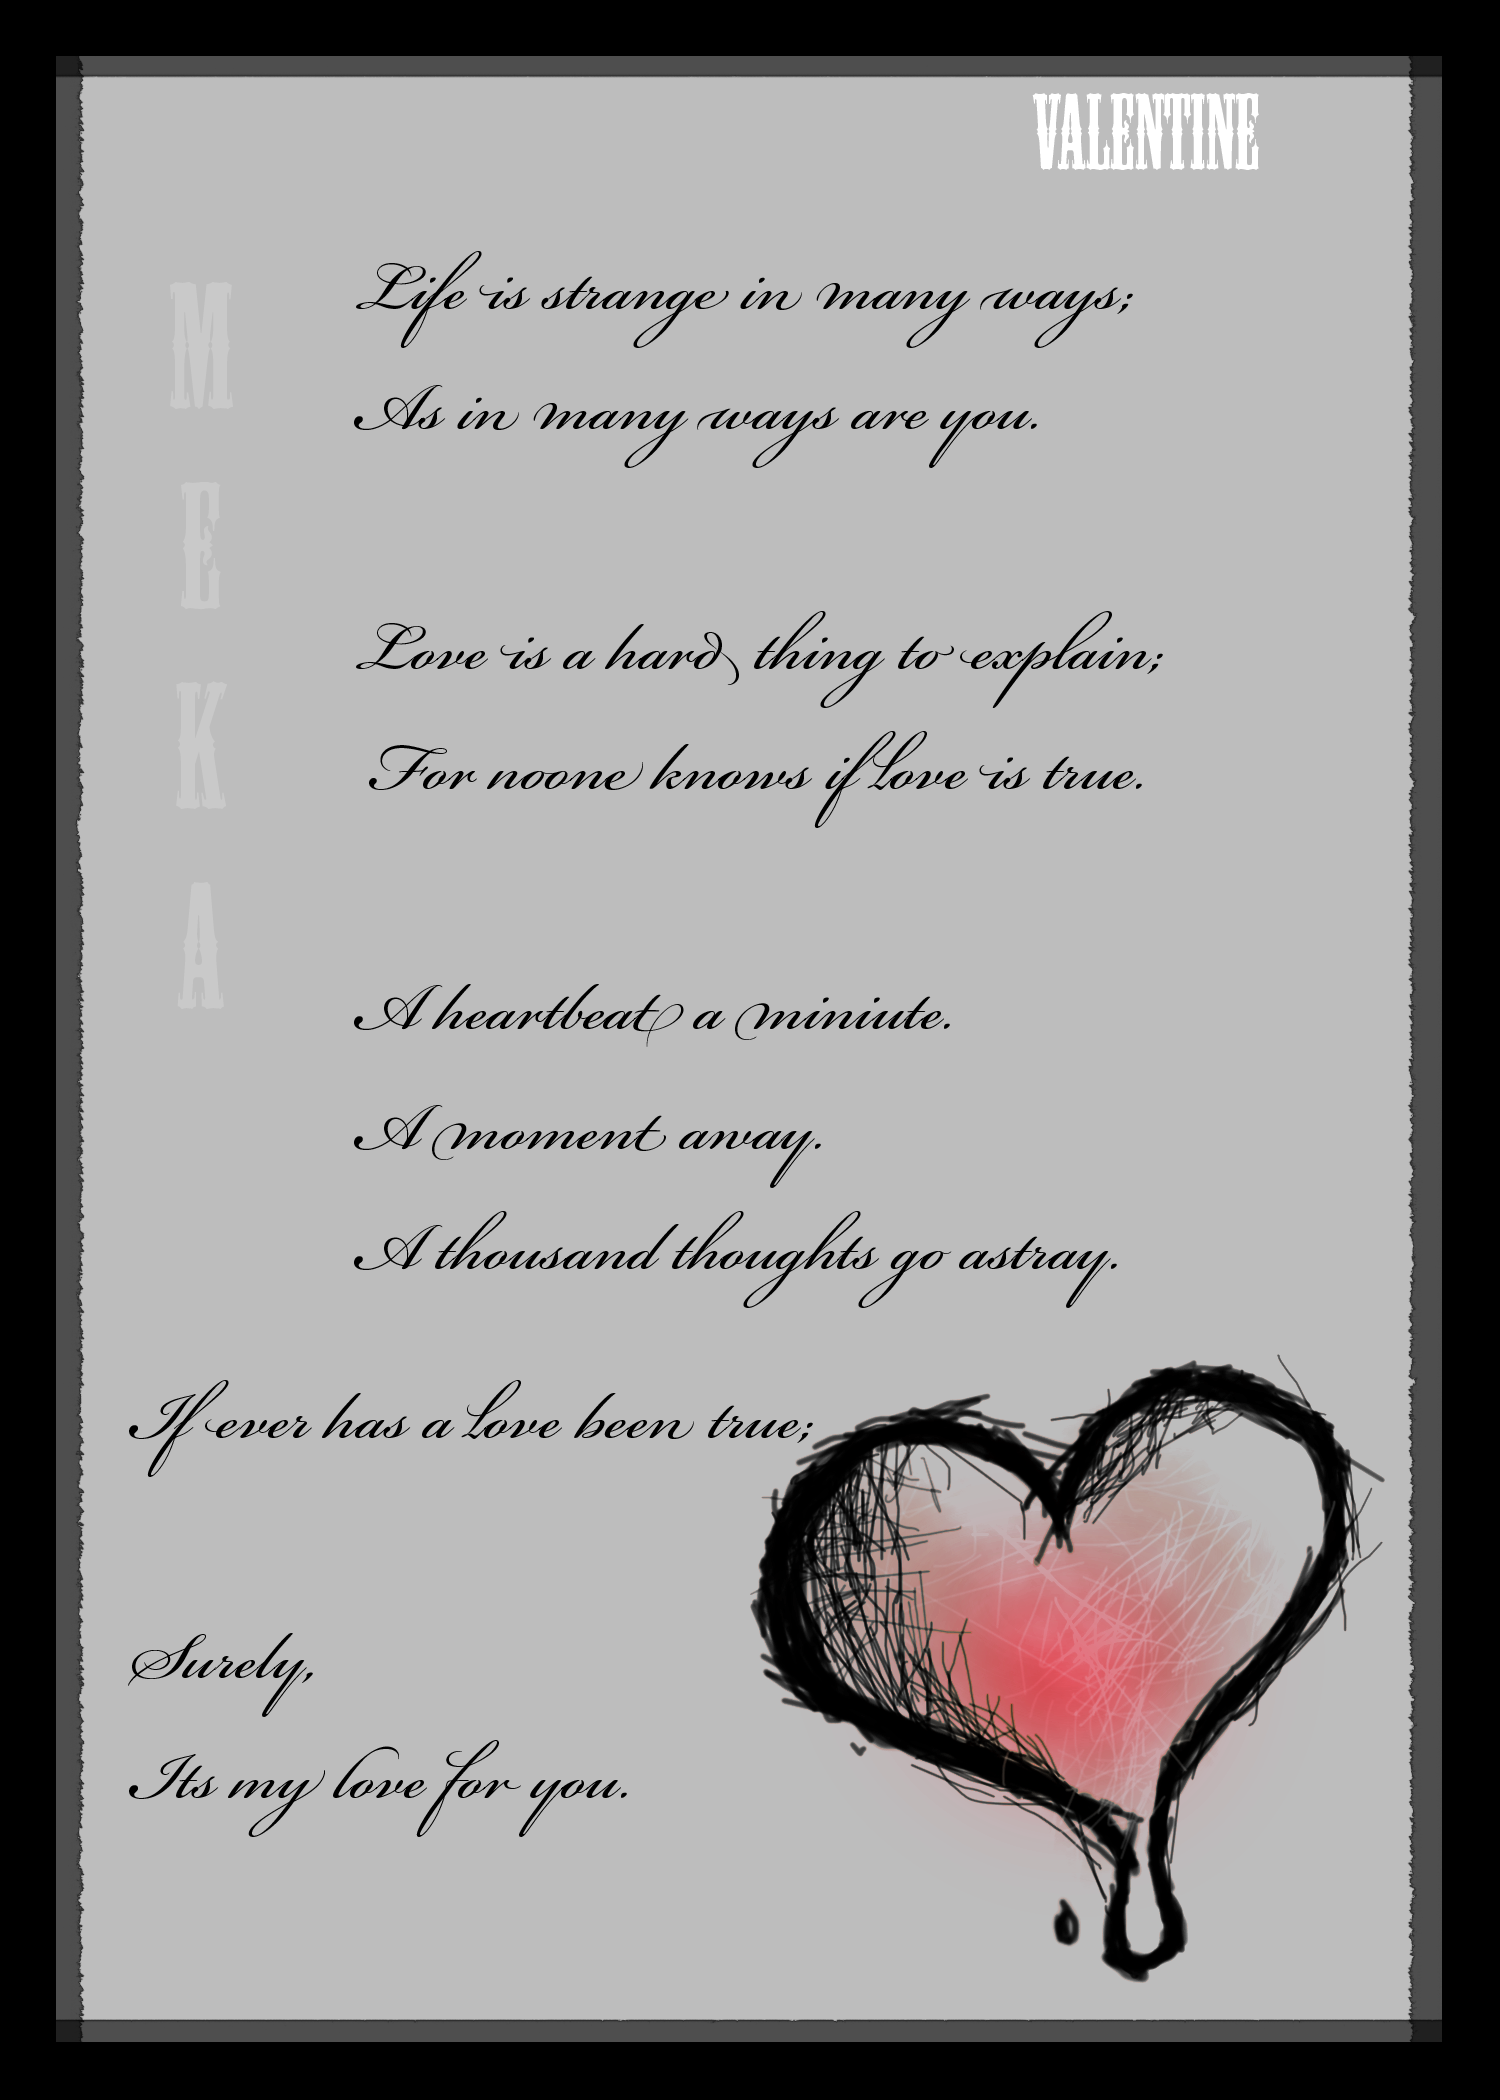 VALENTINE
MEKA
Life is strange in many ways;
As in many ways are you.
Love is a hard thing to explain;
For noone knows if love is true.
A heartbeat a miniute.
A moment away.
A thousand thoughts go astray.
If ever has a love been true;
Surely,
Its my love for you.